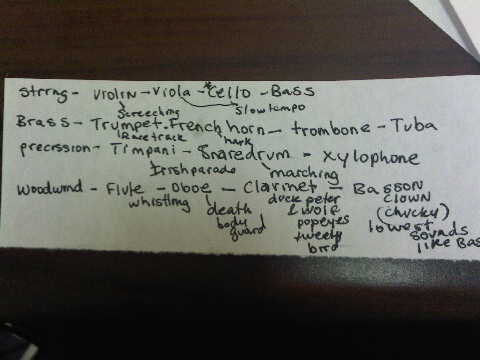 Strrng - violin - viola - *Cello - Bass
Screeching Slow tempo
Brass - Trumpet - French horn - trombone - Tuba
Racetrack hark
precrssion - Timpani - Snaredrum - Xylophone
Irishparade marching
Woodwind - Flute - Oboe - Clarinet - Basson
whistling death body guard
duck peter & wolf popeyes tweety bird
clown (chucky) lowest sounds like Bas